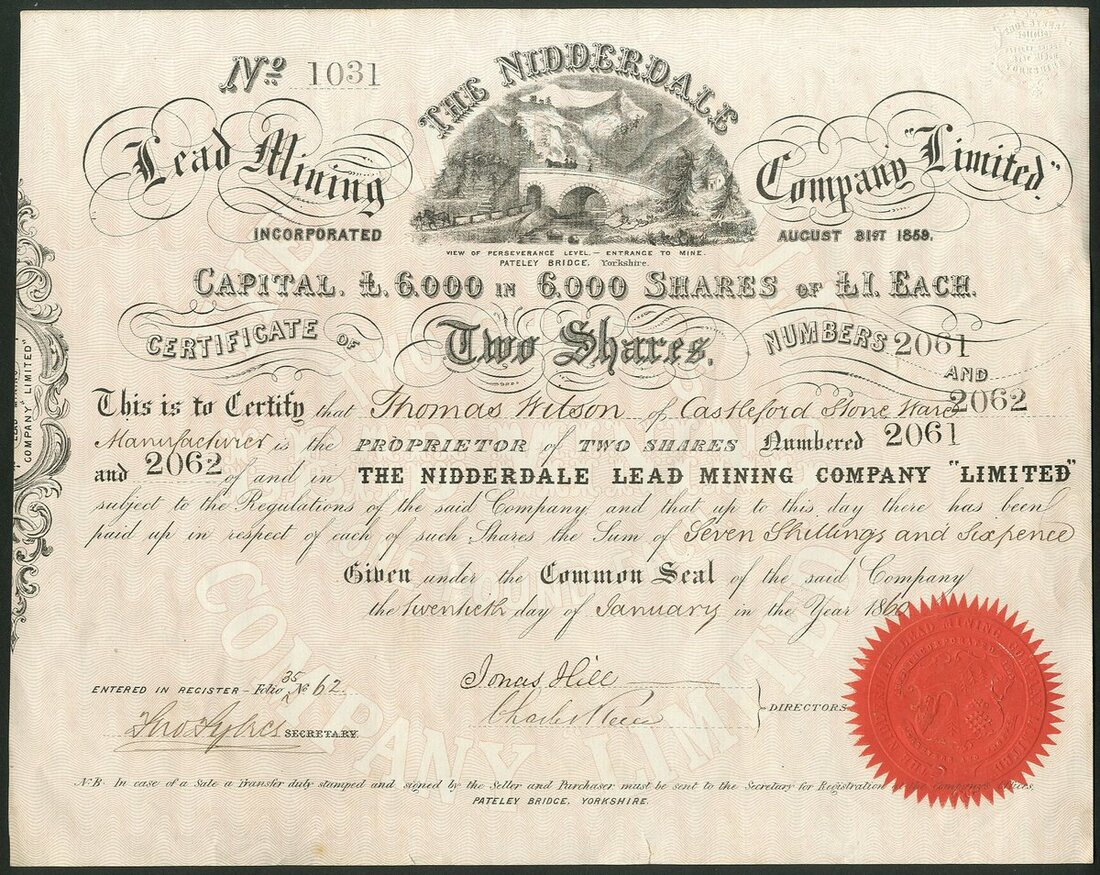 No 1031
THE NIDDERDALE
Lead Mining Company "Limited"
INCORPORATED AUGUST 31ST 1859.
VIEW OF PERSEVERANCE LEVEL.— ENTRANCE TO MINE.
PATELEY BRIDGE. Yorkshire.
CAPITAL. £.6.000 IN 6.000 SHARES OF £1. EACH.
CERTIFICATE OF Two Shares. NUMBERS 2061
AND 2062
This is to Certify that Thomas Wilson of Castleford Stone Ware
Manufacturer is the PROPRIETOR of TWO SHARES Numbered 2061
and 2062 of and in THE NIDDERDALE LEAD MINING COMPANY "LIMITED"
subject to the Regulations of the said Company and that up to this day there has been
paid up in respect of each of such Shares the Sum of Seven Shillings and Sixpence
Given under the Common Seal of the said Company
the twentieth day of January in the Year 1860
ENTERED IN REGISTER – Folio 35 No 62.
Jonas Hill
Charles
DIRECTORS
Jno Sykes SECRETARY.
N.B. In case of a Sale a Transfer duly stamped and signed by the Seller and Purchaser must be sent to the Secretary for Registration
PATELEY BRIDGE. YORKSHIRE.
COMPANY LIMITED
COMPANY LIMITED"